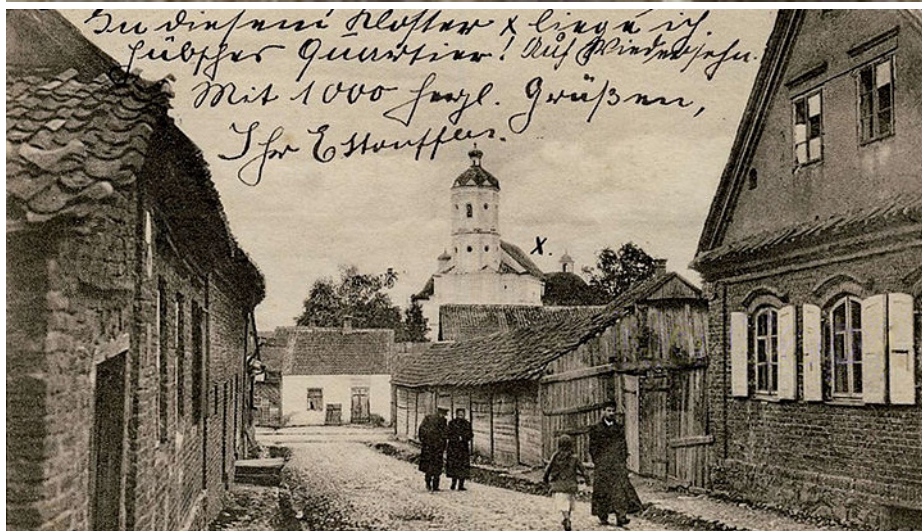 In diesem Kloster x liege ich
hübsches Quartier! Auf Wiedersehn.
Mit 1000 herzl. Grüßen,
Ihr
x.